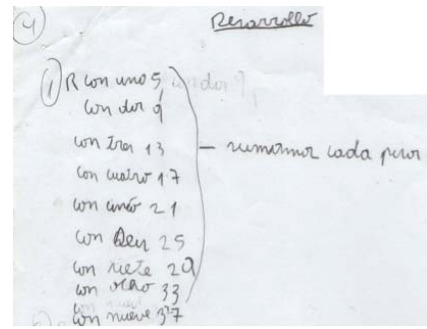 4
Desarrollo
① R con uno 5,
con dos 9
con tres 13
con cuatro 17
con cinco 21
con seis 25
con siete 29
con ocho 33
con nueve 37
— sumamos cada piso